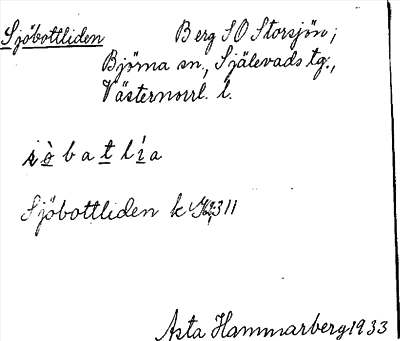 Sjöbottliden Berg SO Storsjön;
Björna sn., Själevads tg.,
Västernorrl. l.
sòbatlía
Sjöbottliden k 311
Asta Hammarberg 1933